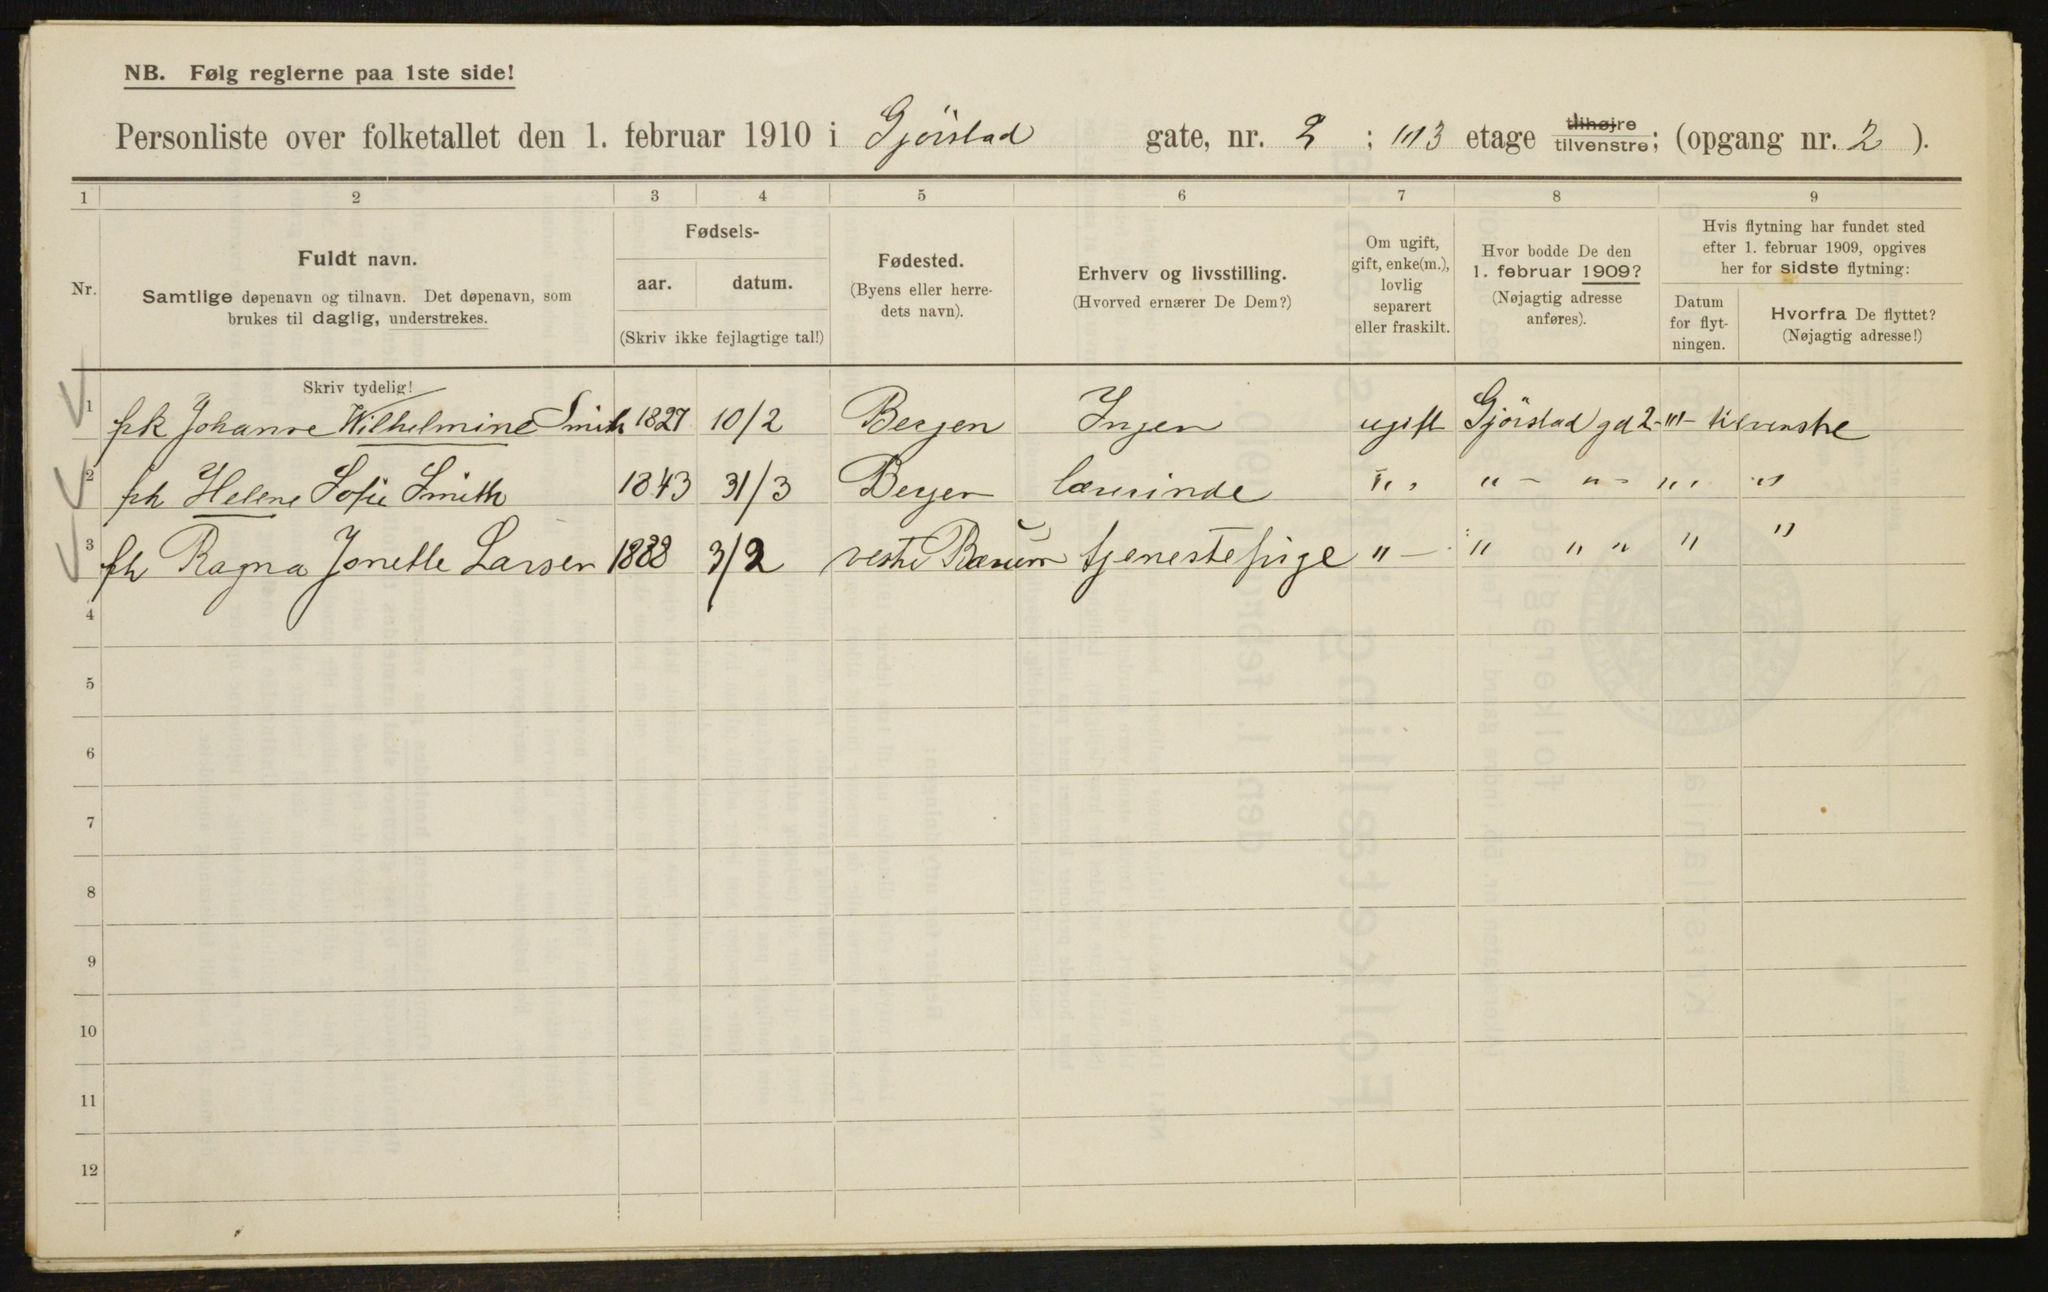 NB. Følg reglerne paa 1ste side!
Personliste over folketallet den 1. februar 1910 i Gjörstad gate, nr. 2 ; III 3 etage tilhøjre tilvenstre; (opgang nr. 2 ).
1 2 3 4 5 6 7 8 9
Nr.
Fuldt navn.
Samtlige døpenavn og tilnavn. Det døpenavn, som
brukes til daglig, understrekes.
Fødsels-
aar. datum.
(Skriv ikke fejlagtige tal!)
Fødested.
(Byens eller herre-
dets navn).
Erhverv og livsstilling.
(Hvorved ernærer De Dem?)
Om ugift,
gift, enke(m.),
lovlig
separert
eller fraskilt.
Hvor bodde De den
1. februar 1909?
(Nøjagtig adresse
anføres).
Hvis flytning har fundet sted
efter 1. februar 1909, opgives
her for sidste flytning:
Datum
for flyt-
ningen.
Hvorfra De flyttet?
(Nøjagtig adresse!)
Skriv tydelig!
1 frk Johanne Wilhelmine Smith 1827 10/2 Bergen Ingen ugift Gjörstad gd 2 - III - tilvenstre
2 frk Helene Sofie Smith 1843 31/3 Bergen lærerinde " " - " - " "
3 frk Ragna Jonette Larsen 1888 3/2 vestre Bærum tjenestepige " - " " " " "
4
5
6
7
8
9
10
11
12